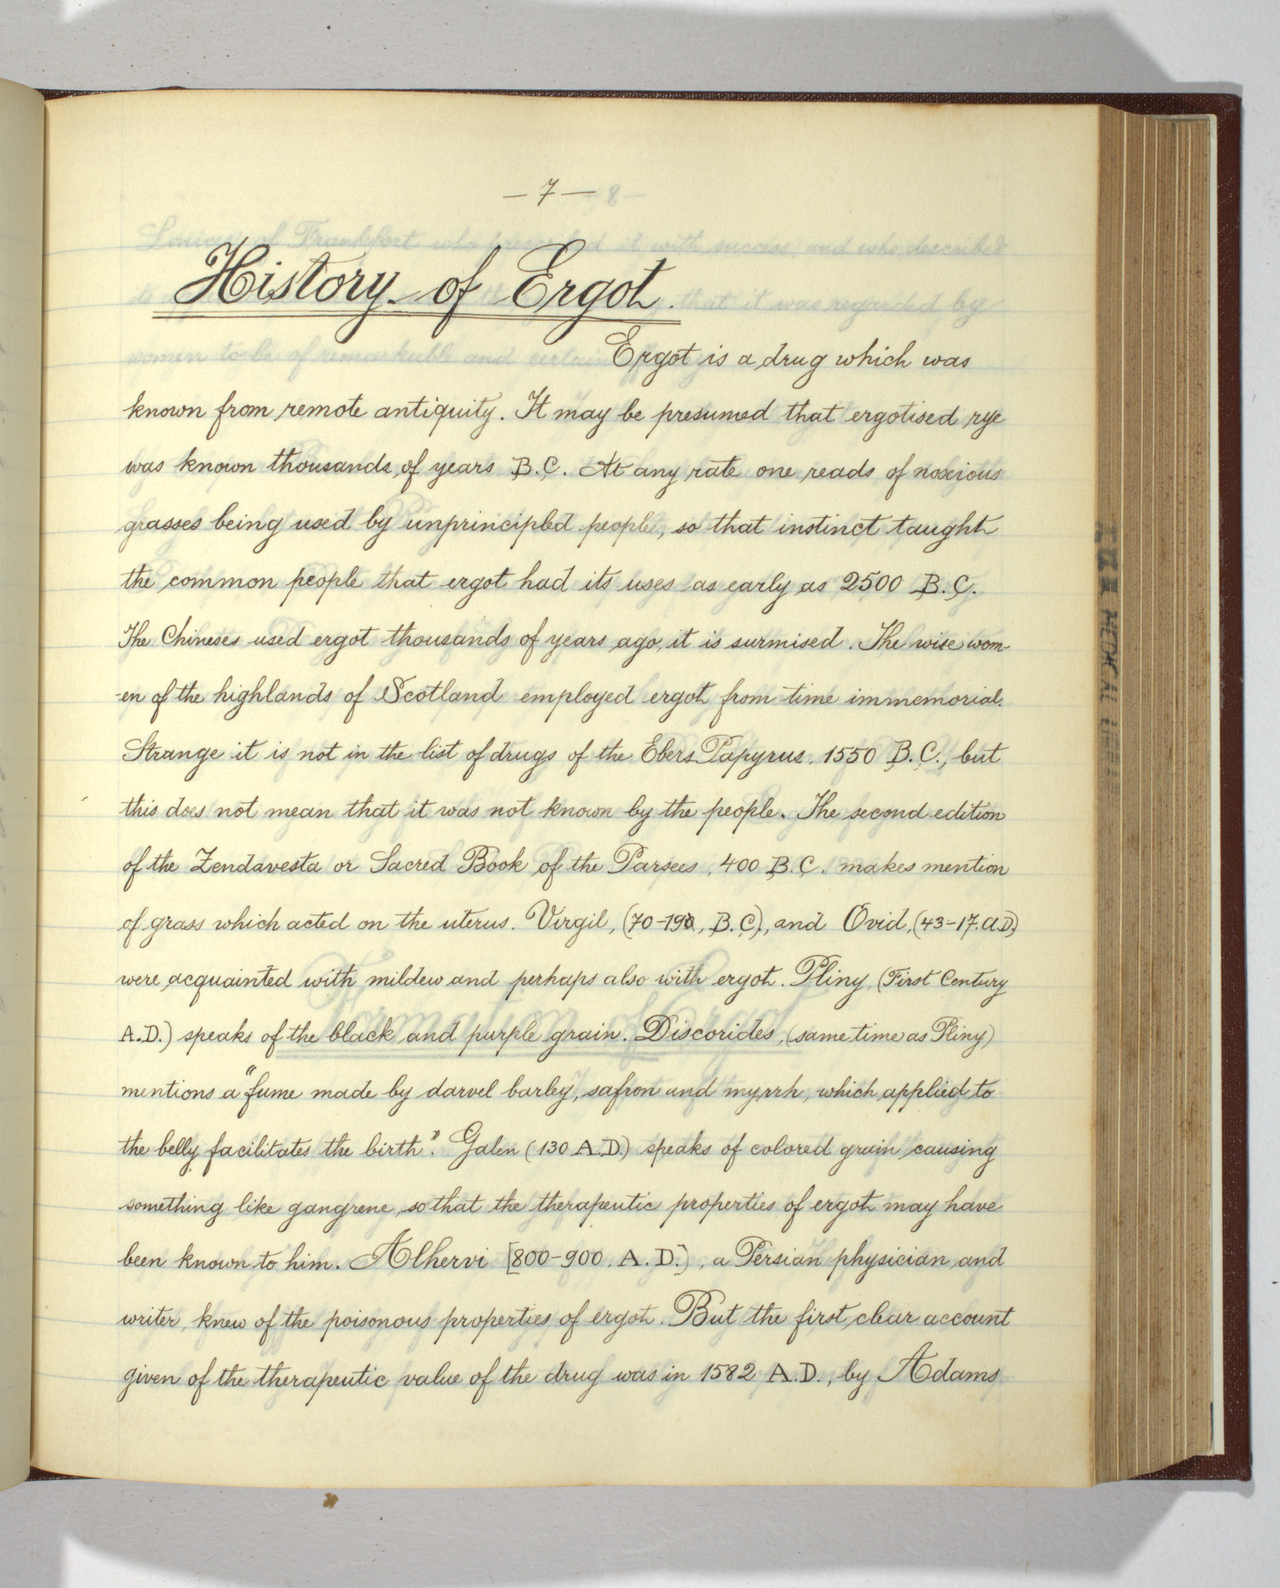 — 7 —
History of Ergot.
Ergot is a drug which was
known from remote antiquity. It may be presumed that ergotised rye
was known thousands of years B.C. At any rate one reads of noxious
grasses being used by unprincipled people, so that instinct taught
the common people that ergot had its uses as early as 2500 B.C.
The Chineses used ergot thousands of years ago, it is surmised. The wise wom-
-en of the highlands of Scotland employed ergot from time immemorial.
Strange it is not in the list of drugs of the Ebers Papyrus. 1550 B.C., but
this does not mean that it was not known by the people. The second edition
of the Zendavesta or Sacred Book of the Parsees, 400 B.C. makes mention
of grass which acted on the uterus. Virgil, (70-19, B.C), and Ovid, (43-17. A.D.)
were acquainted with mildew and perhaps also with ergot. Pliny, (First Century
A.D.) speaks of the black and purple grain. Discorides, (same time as Pliny)
mentions a "fume made by darvel barley, safron and myrrh, which applied to
the belly facilitates the birth". Galen (130 A.D.) speaks of colored grain causing
something like gangrene, so that the therapeutic properties of ergot may have
been known to him. Alhervi [800-900. A.D.), a Persian physician and
writer, knew of the poisonous properties of ergot. But the first clear account
given of the therapeutic value of the drug was in 1582 A.D., by Adams